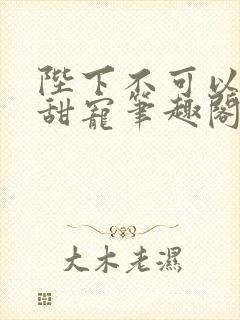 陛下不可以
甜寵筆趣閣
大木老濕